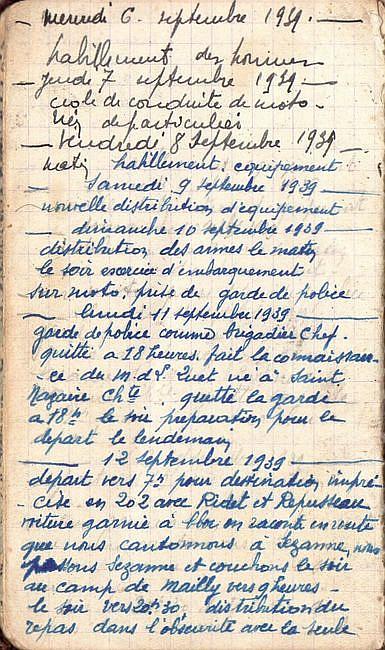 — mercredi 6. septembre 1939. —
habillement des hommes
— jeudi 7 septembre 1939 —
école de conduite de moto -
rien de particulier
— Vendredi 8 Septembre 1939
matin habillement. équipement
— Samedi 9 septembre 1939 —
nouvelle distribution d'équipement
— dimanche 10 septembre 1939 —
distribution des armes le matin
le soir exercice d'embarquement
sur moto. prise de garde de police
— lundi 11 septembre 1939 —
garde de police comme brigadier chef.
quitté a 18 heures. fait la connaissan-
ce du m.d.L. né à Saint
Nazaire Chte quitté la garde
a 18h le soir preparation pour le
depart le lendemain
— 12 septembre 1939 —
depart vers 7h pour destination impré-
- cise en 202 avec Ridet et Repusseau
voiture garnie à bloc on raconte en route
que nous cantonnons à Sezanne, nous
passons Sezanne et couchons le soir
au camp de Mailly vers 9 heures -
le soir vers 20h30, distribution du
repas dans l'obscurité avec la seule